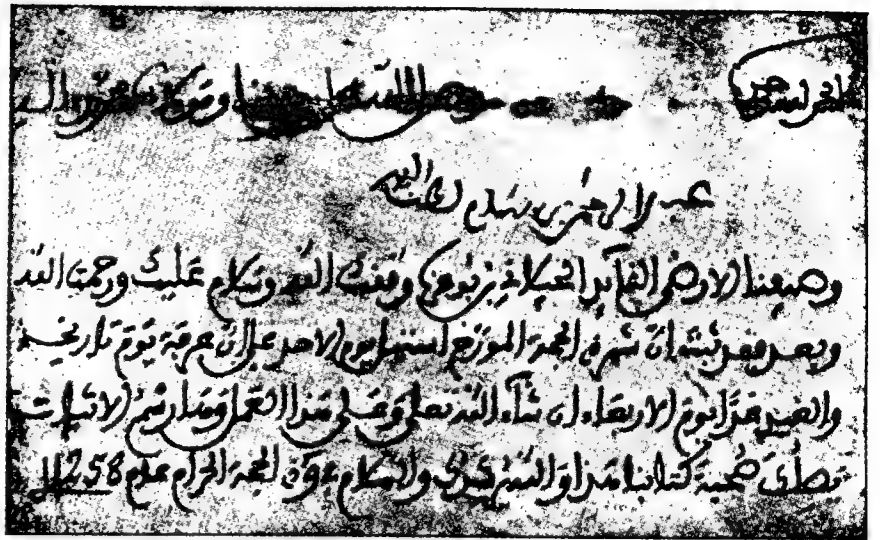 الحمد لله وحده وصلى الله على سيدنا ومولانا محمد واله
عبد الرحمن بن هشام الله
وصيفنا الارضى القايد الجيلاني بن بوعزة وفقك الله وسلام عليك ورحمت الله
وبعد فقد ثبت ان شهر ذي الحجة المورخ استهل يوم الاحد على ان عرفة يوم تاريخه
والعيد غدا يوم الاربعاء ان شاء الله تعلى وعلى هذا العمل الاثبات
يصلك صحبة كتابنا هذا والله والسلام في ذي الحجة الحرام عام 1258